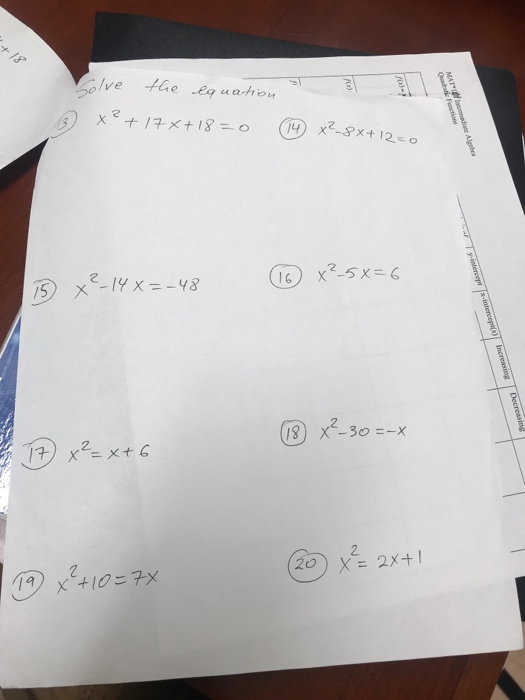 + 18
Solve the equation
13 x² + 17x + 18 = 0
14 x² - 8x + 12 = 0
15 x² - 14x = -48
16 x² - 5x = 6
17 x² = x + 6
18 x² - 30 = -x
19 x² + 10 = 7x
20 x² = 2x + 1
Intermediate Algebra
Quadratic Functions
f(x)
y-intercept
x-intercept(s)
Increasing
Decreasing